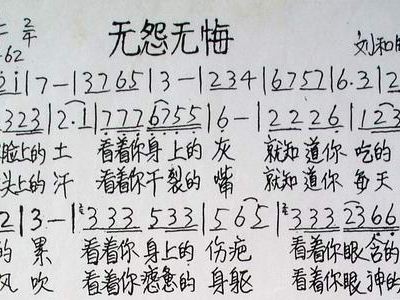 无怨无悔
2/4
=62
刘和
i|7-|3765|3-|234|6757|6·3|2
323|2·1|777 6755|6-|2226|123
脸上的土 看着你身上的灰 就知道你吃的
头上的汗 看着你干裂的嘴 就知道你每天
2|3-|333 533|565|333 2366
的累 看着你身上的伤疤 看着你眼含的
风吹 看着你疲惫的身躯 看着你眼神的